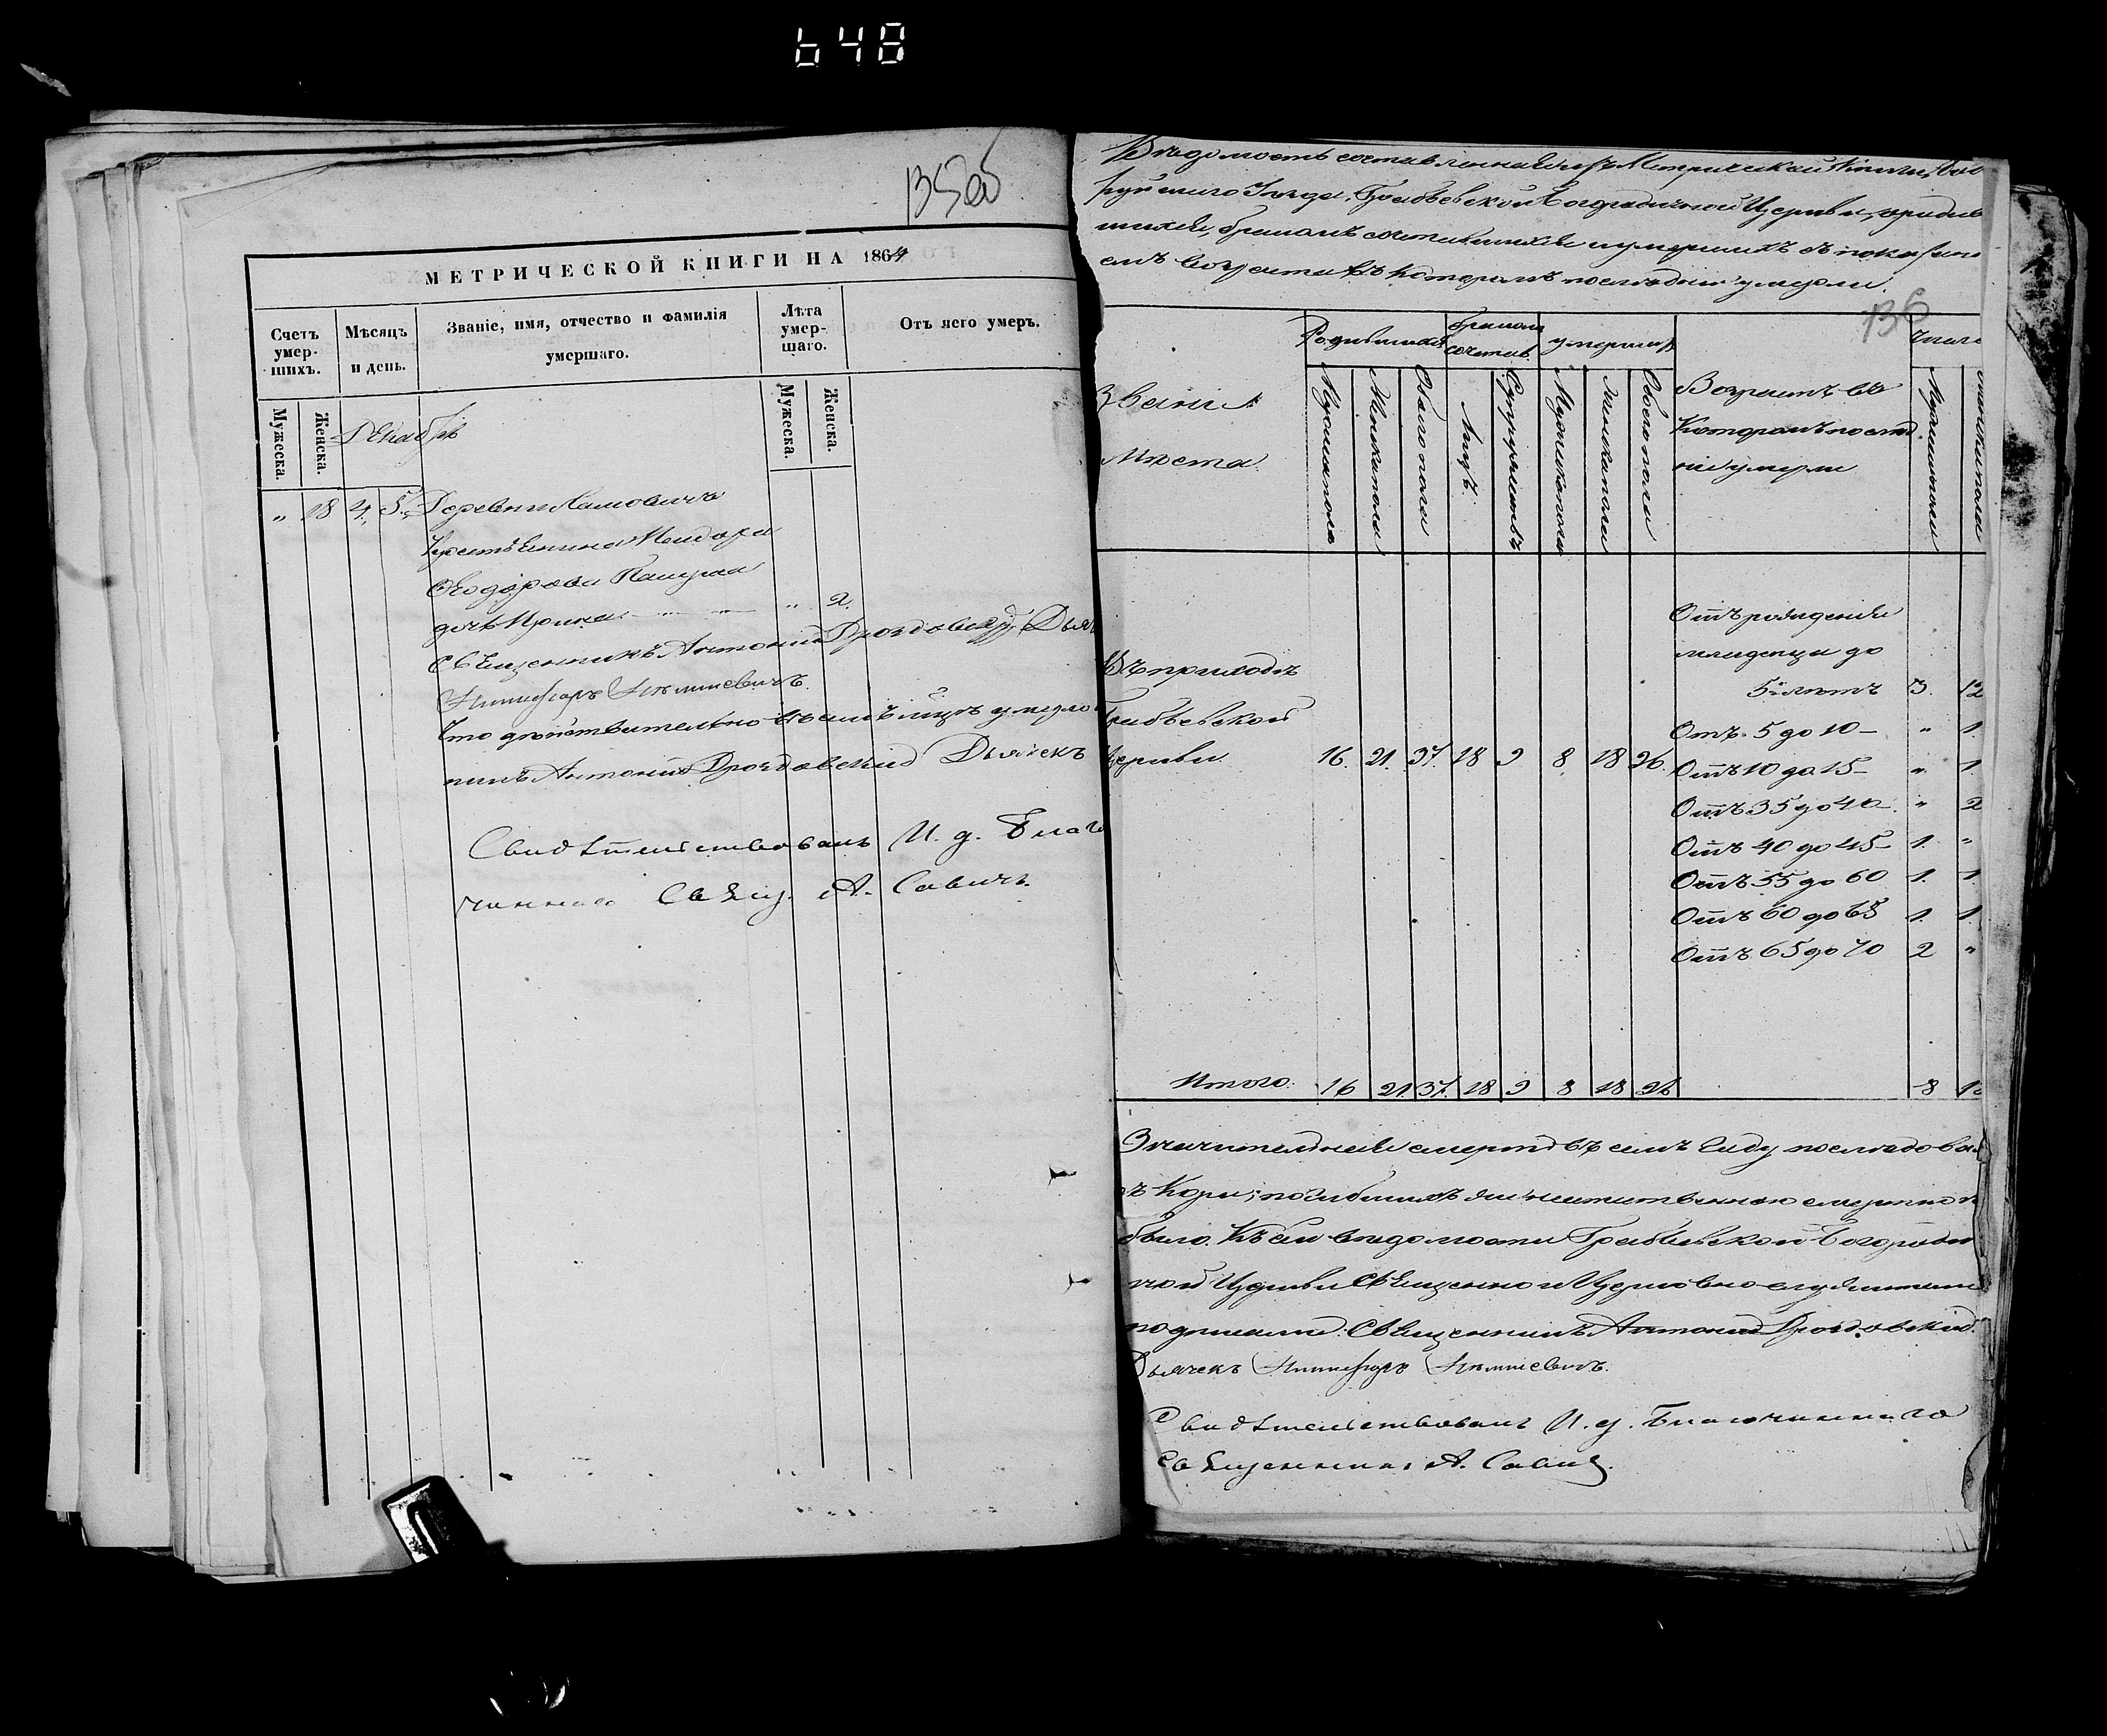 648
135об
МЕТРИЧЕСКОЙ КНИГИ НА 1864
Счетъ умер- шихъ.
Мѣсяцъ и день.
Званіе, имя, отчество и фамилія умершаго.
Лѣта умер- шаго.
Отъ чего умеръ.
Мужеска.
Женска.
Мужеска.
Женска.
Декабрь
„ 18 4. 5. Деревни
Крестьянина
Ѳеодорова
дочь Ирина „ 2.
Священникъ Антоній Дроздовскій Дья
Что дѣйствительно въ семъ умерло
Антоній Дроздовскій Дьячекъ
Свидѣтельствовалъ И. д. Благо
чиннаго Свящ. А. Савичъ.
Вѣдомость составленная изъ Метрической Книги, Боб
руйскаго Уѣзда, Грабьевской Богородичной Церкви, о родив
шихся, бракомъ сочетавшихся и умершихъ съ показані
емъ возраста въ которомъ послѣдніе умерли.
136
Званіе мѣста.
Родившихся
Бракомъ сочетав.
умершихъ
Возрастъ въ
Которомъ послѣд
ніе умерли
Число
Мужска пола
Женска пола
Обаго пола
Лицъ.
Супружествъ
Мужскаго пола
Женска пола
Обоего пола
Отъ рожденія
младенца до
5 лѣтъ 3. 12
Въ приходѣ
Грабьевской
Церкви. 16. 21. 37. 18 9 8 18 26.
Отъ 5 до 10 „ 1.
Отъ 10 до 15 „ 1.
Отъ 35 до 40 „ 2
Отъ 40 до 45 1. „
Отъ 55 до 60 1. 1.
Отъ 60 до 65 1. 1.
Отъ 65 до 70 2 „
Итого. 16 21. 37. 18 9 8 18 26 8 1
Значительная смерть въ семъ году послѣдова
ъ Кори; погибшихъ смертію н
было. Къ сей вѣдомости Грабьевской Богороди
чной Церкви Священно и Церковно-служители
подписали: Священникъ Антоній Дроздовскій.
Дьячекъ
Свидѣтельствовалъ И. д. Благочиннаго
Священникъ А. Савичъ.